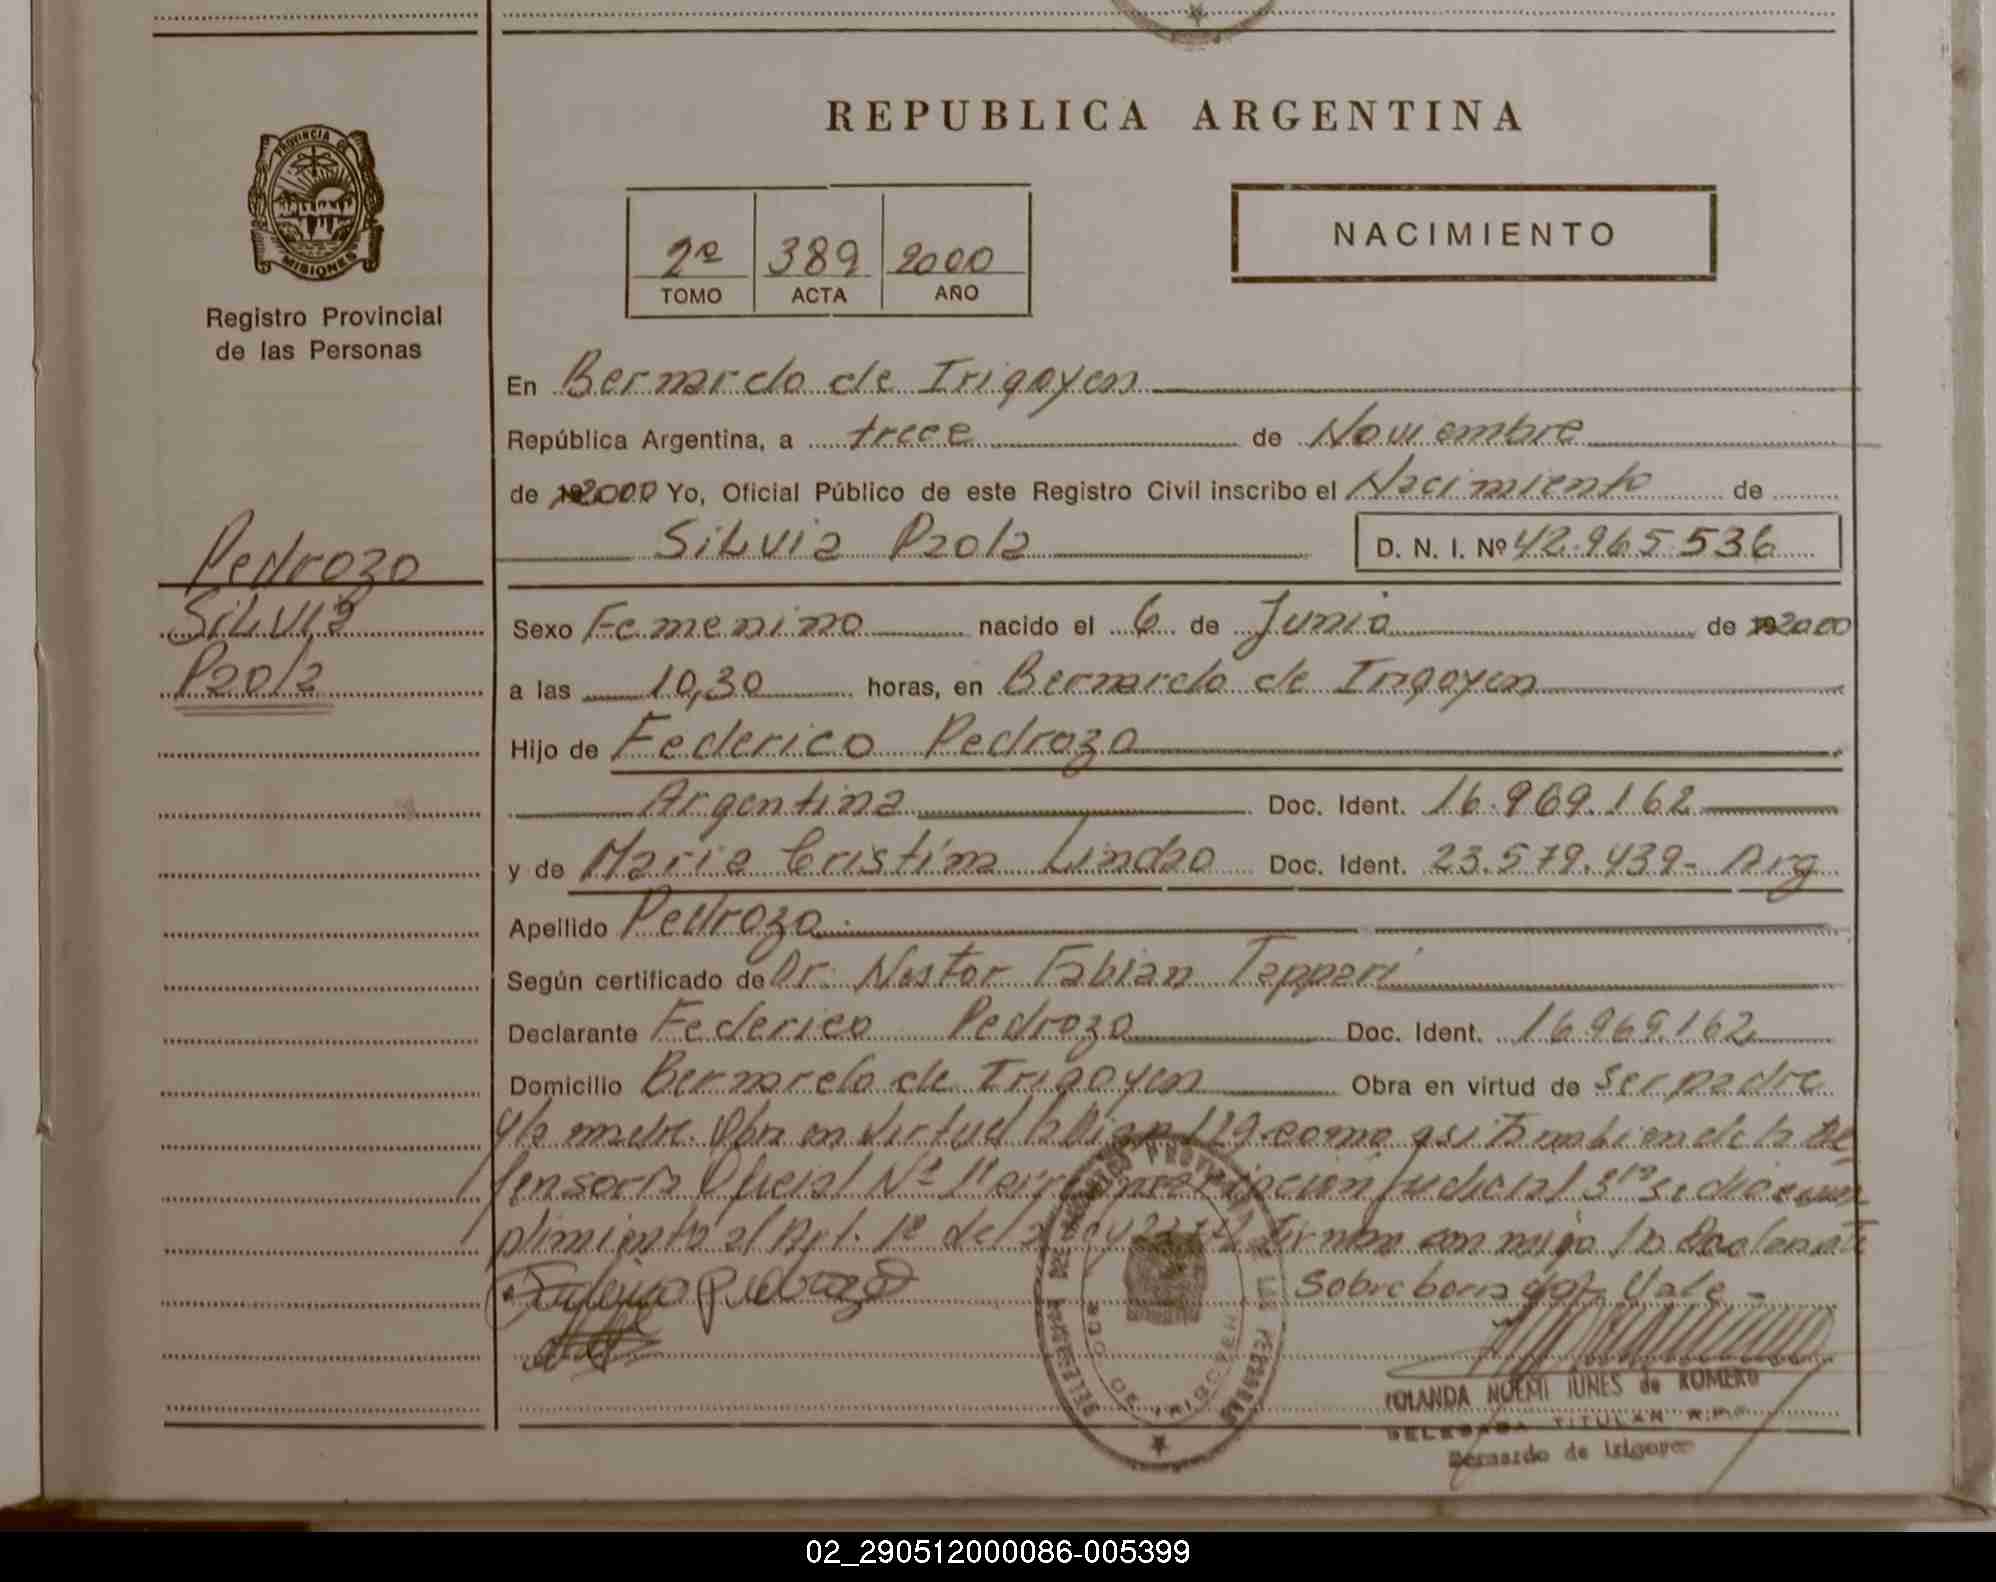 REPUBLICA ARGENTINA
PROVINCIA DE
MISIONES
Registro Provincial
de las Personas
2º 389 2000
TOMO ACTA AÑO
NACIMIENTO
En Bernardo de Irigoyen
República Argentina, a trece de Noviembre
de 2000 Yo, Oficial Público de este Registro Civil inscribo el Nacimiento de
Silvia Paola D. N. I. Nº 42.965.536
Pedrozo
Silvia
Paola
Sexo Femenino nacido el 6 de Junio de 2000
a las 10,30 horas, en Bernardo de Irigoyen
Hijo de Federico Pedrozo
Argentina Doc. Ident. 16.969.162
y de Maria Cristina Lindao Doc. Ident. 23.579.439- Arg
Apellido Pedrozo
Según certificado de Dr. Nestor Fabian Tappari
Declarante Federico Pedrozo Doc. Ident. 16.969.162
Domicilio Bernardo de Irigoyen Obra en virtud de ser padre
y la madre. Obra en virtud como asi tambien de la De
fensoria Oficial Nº 1 judicial se dio cum
plimiento al Art. 1º de la Ley conmigo la Declarante
Federico Pedrozo Sobre borra Vale -
YOLANDA NOEMI IUNES de ROMERO
DELEGADA TITULAR R.P.P.
Bernardo de Irigoyen
02_290512000086-005399